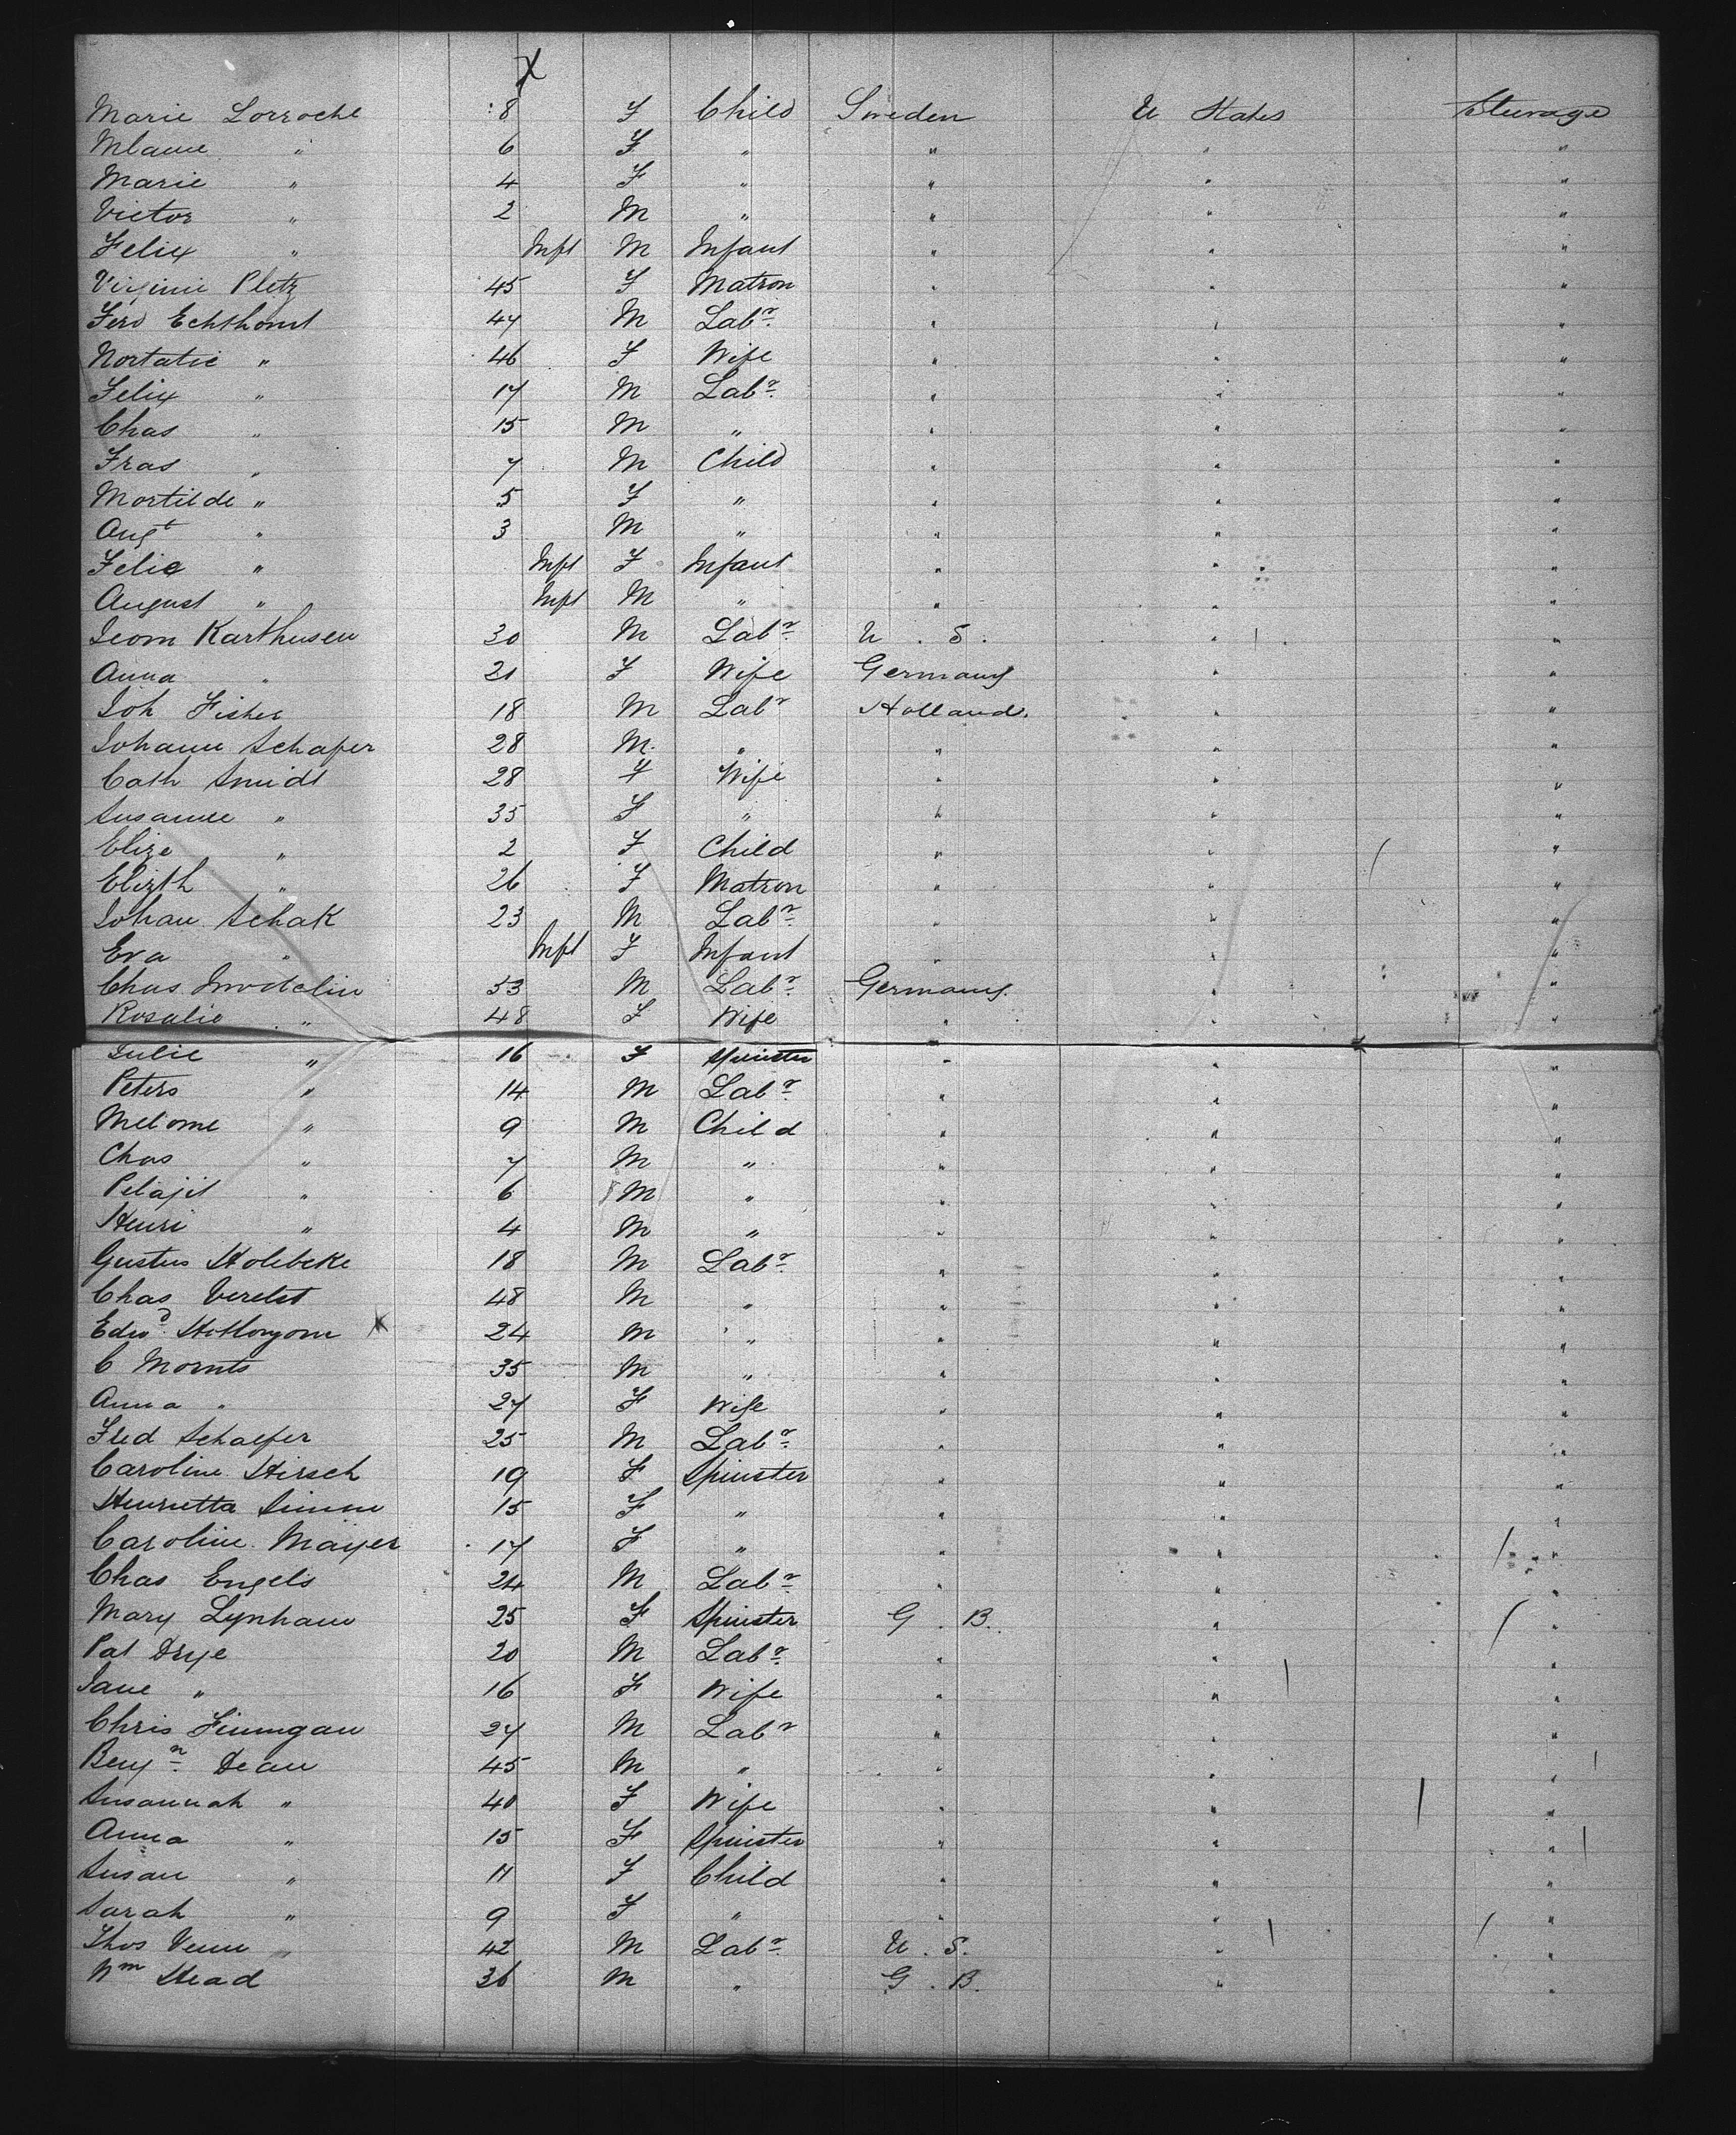 X
Marie Lorroche 8 F Child Sweden U States Steerage
Mlaune " 6 F " " " "
Marie " 4 F " " " "
Victor " 2 M " " " "
Felix " Inft M Infant " " "
Virginie Pletz 45 F Matron " " "
Ferd Echthomt 47 M Labr " " "
Nortatie " 46 F Wife " " "
Felix " 17 M Labr " " "
Chas " 15 M " " " "
Fras " 7 M Child " " "
Mortilde " 5 F " " " "
Augt " 3 M " " " "
Felie " Inft F Infant " " "
August " Inft M " " " "
Leom Karthusen 30 M Labr U. S. " "
Anna " 21 F Wife Germany " "
Joh Fisher 18 M Labr Holland. " "
Johann Schafer 28 M " " " "
Cath Smidt 28 F Wife " " "
Susanne " 35 F " " " "
Elize " 2 F Child " " "
Elizth " 26 F Matron " " "
Johan Schak 23 M Labr " " "
Eva " Inft F Infant " " "
Chas 53 M Labr Germany. " "
Rosalie " 48 F Wife " " "
Julie " 16 F Spinster " " "
Peters " 14 M Labr " " "
Melome " 9 M Child " " "
Chas " 7 M " " " "
Pelajil " 6 M " " " "
Henri " 4 M " " " "
Gustus Holebeke 18 M Labr " " "
Chas Verelst 48 M " " " "
Edwd X 24 M " " " "
C Mornts 35 M " " " "
Anna " 27 F Wife " " "
Fred Schaefer 25 M Labr " " "
Caroline Hirsch 19 F Spinster " " "
Henrietta Simm 15 F " " " "
Caroline Mayer 17 F " " " "
Chas Engels 24 M Labr " " "
Mary Lynham 25 F Spinster G. B. " "
Pat Drye 20 M Labr " " "
Jane " 16 F Wife " " "
Chris Finnigan 27 M Labr " " "
Benjn Dean 45 M " " " "
Susannah " 40 F Wife " " "
Anna " 15 F Spinster " " "
Susan " 11 F Child " " "
Sarah " 9 F " " " "
Thos Venn " 42 M Labr U. S. " "
Wm Head 36 M " G. B. " "